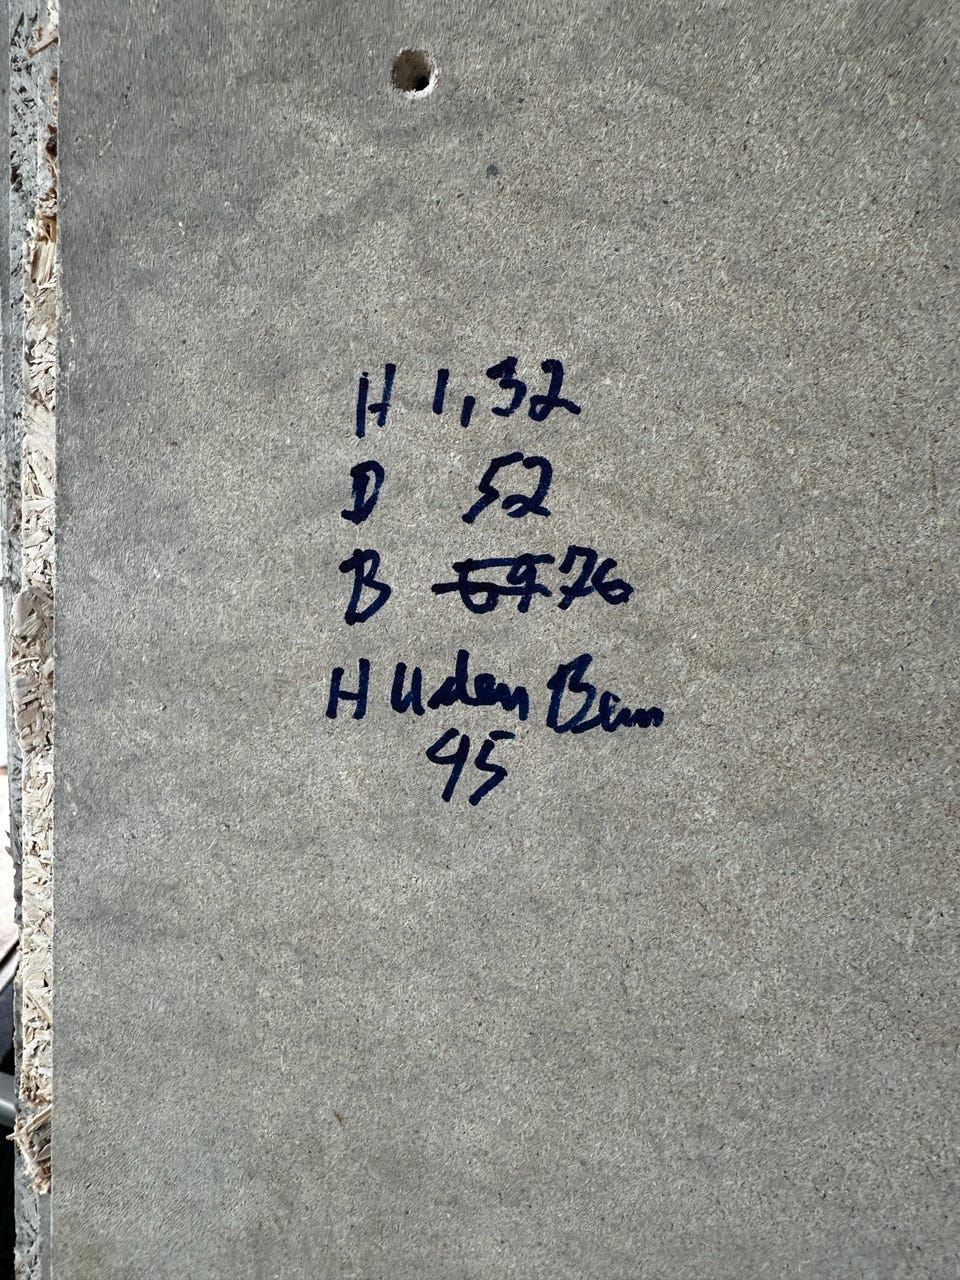 H 1,32
D 52
B 76
H Uden Ben
95